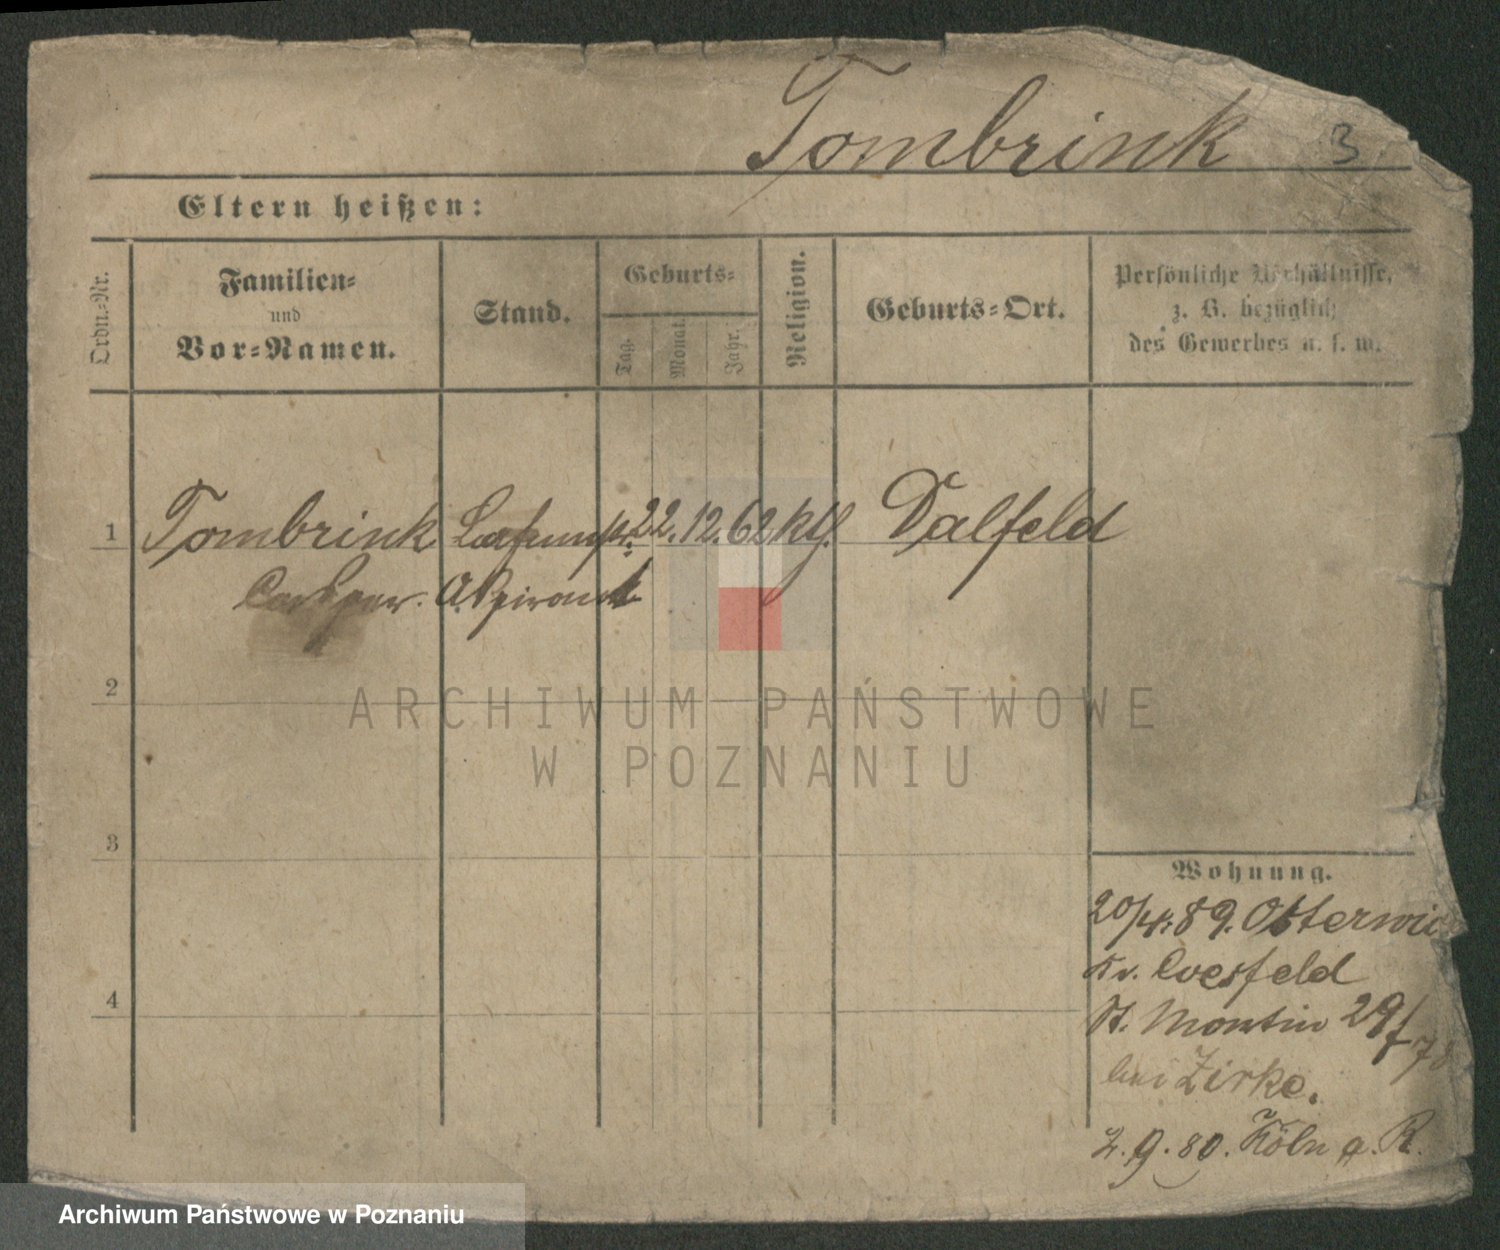 Tombrink 3
Eltern heißen:
Ordn.-Nr.
Familien- und Vor-Namen.
Stand.
Geburts-
Tag.
Monat.
Jahr.
Religion.
Geburts-Ort.
Persönliche Verhältnisse,
z. B. bezüglich
des Gewerbes u. s. w.
1 Tombrink 22. 12. 62 kth. Dalfeld
Caspar. Aspirant
2
3
4
Wohnung.
20/4. 89. Osterwic
Kr. Coesfeld
St. Martin 29
bei Zirke.
2. 9. 89. Köln a. R.
ARCHIWUM PAŃSTWOWE
W POZNANIU
Archiwum Państwowe w Poznaniu